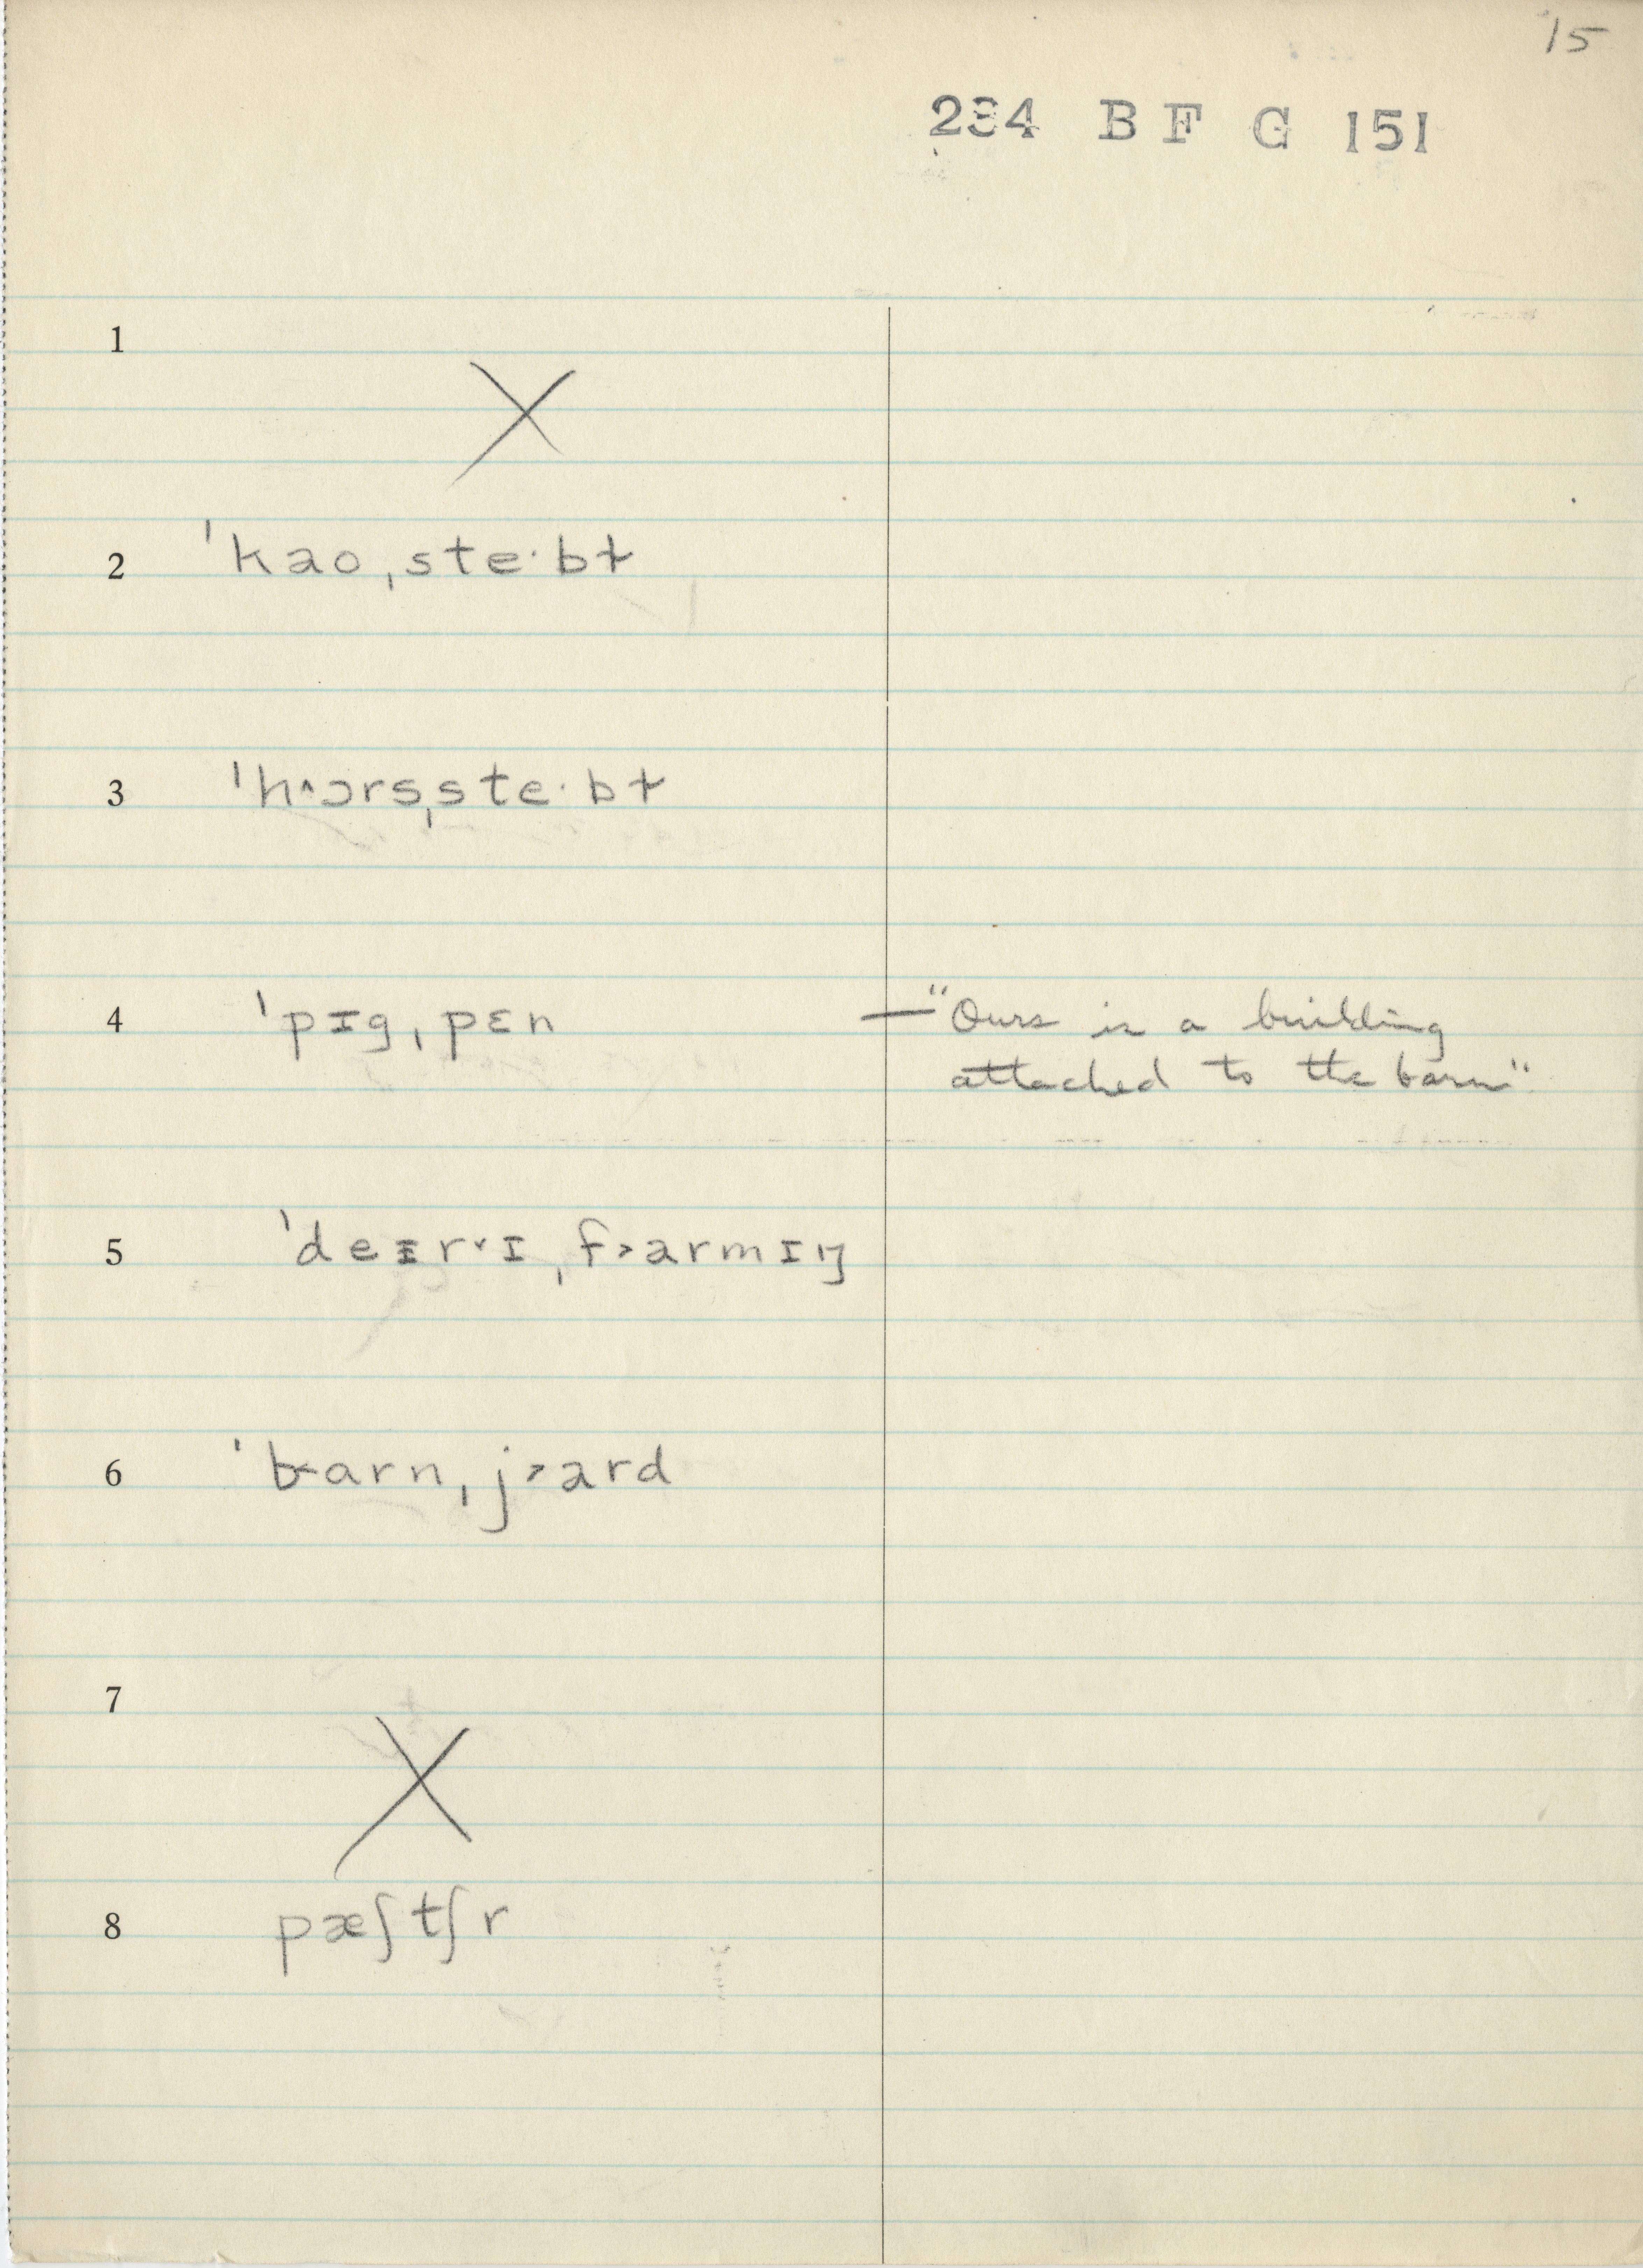 15
234 B F G 151
1
X
2 ˈkaoˌste·bɫ
3 ˈh^ɔrsˌste·bɫ
4 ˈpɪgˌpɛn —"Ours is a building
attached to the barn"
5 ˈdeɪ̵r˅ɪˌf˃armɪŋ
6 ˈb˂arnˌj˃ard
7
X
8 pæʃtʃr